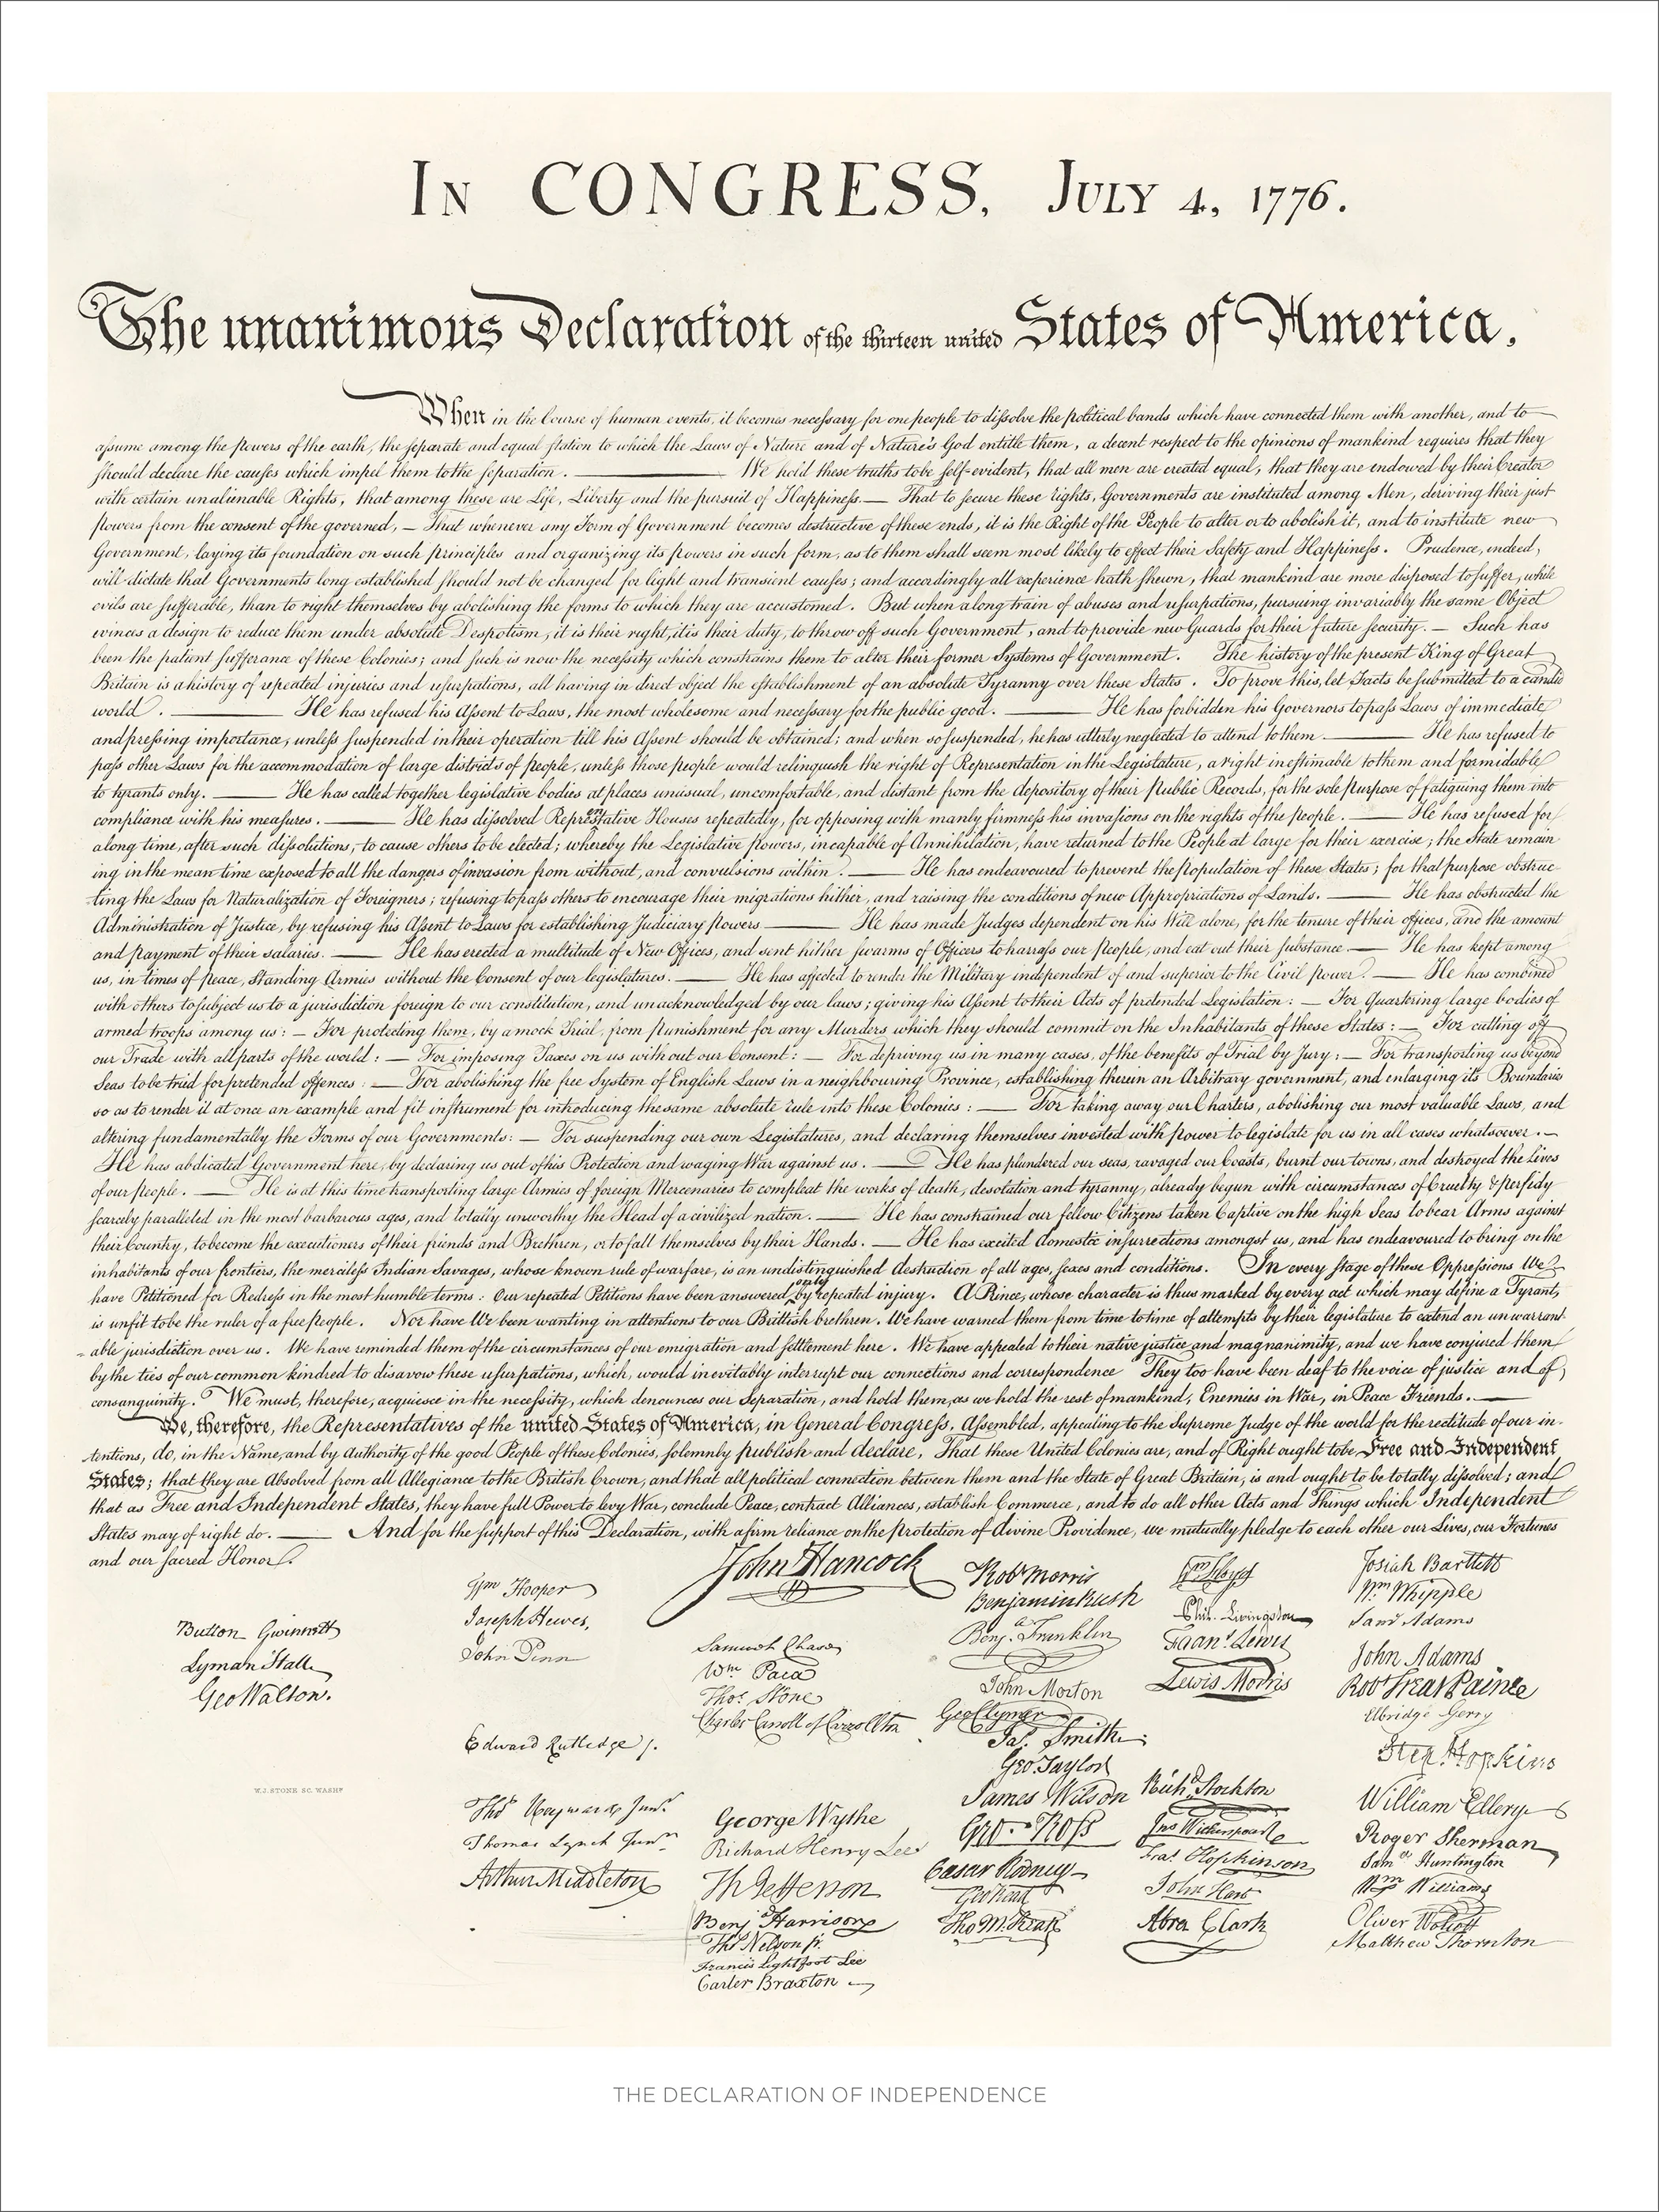 IN CONGRESS, JULY 4, 1776.
The unanimous Declaration of the thirteen united States of America,
When in the Course of human events, it becomes necessary for one people to dissolve the political bands which have connected them with another, and to
assume among the powers of the earth, the separate and equal station to which the Laws of Nature and of Nature's God entitle them, a decent respect to the opinions of mankind requires that they
should declare the causes which impel them to the separation. ——— We hold these truths to be self-evident, that all men are created equal, that they are endowed by their Creator
with certain unalienable Rights, that among these are Life, Liberty and the pursuit of Happiness.— That to secure these rights, Governments are instituted among Men, deriving their just
powers from the consent of the governed, — That whenever any Form of Government becomes destructive of these ends, it is the Right of the People to alter or to abolish it, and to institute new
Government, laying its foundation on such principles and organizing its powers in such form, as to them shall seem most likely to effect their Safety and Happiness. Prudence, indeed,
will dictate that Governments long established should not be changed for light and transient causes; and accordingly all experience hath shewn, that mankind are more disposed to suffer, while
evils are sufferable, than to right themselves by abolishing the forms to which they are accustomed. But when a long train of abuses and usurpations, pursuing invariably the same Object
evinces a design to reduce them under absolute Despotism, it is their right, it is their duty, to throw off such Government, and to provide new Guards for their future security. — Such has
been the patient sufferance of these Colonies; and such is now the necessity which constrains them to alter their former Systems of Government. The history of the present King of Great
Britain is a history of repeated injuries and usurpations, all having in direct object the establishment of an absolute Tyranny over these States. To prove this, let Facts be submitted to a candid
world. ——— He has refused his Assent to Laws, the most wholesome and necessary for the public good. ——— He has forbidden his Governors to pass Laws of immediate
and pressing importance, unless suspended in their operation till his Assent should be obtained; and when so suspended, he has utterly neglected to attend to them. ——— He has refused to
pass other Laws for the accommodation of large districts of people, unless those people would relinquish the right of Representation in the Legislature, a right inestimable to them and formidable
to tyrants only. ——— He has called together legislative bodies at places unusual, uncomfortable, and distant from the depository of their Public Records, for the sole purpose of fatiguing them into
compliance with his measures. ——— He has dissolved Representative Houses repeatedly, for opposing with manly firmness his invasions on the rights of the people. ——— He has refused for
a long time, after such dissolutions, to cause others to be elected; whereby the Legislative powers, incapable of Annihilation, have returned to the People at large for their exercise; the State remain
ing in the mean time exposed to all the dangers of invasion from without, and convulsions within. ——— He has endeavoured to prevent the population of these States; for that purpose obstruc
ting the Laws for Naturalization of Foreigners; refusing to pass others to encourage their migrations hither, and raising the conditions of new Appropriations of Lands. ——— He has obstructed the
Administration of Justice, by refusing his Assent to Laws for establishing Judiciary powers ——— He has made Judges dependent on his Will alone, for the tenure of their offices, and the amount
and payment of their salaries. ——— He has erected a multitude of New Offices, and sent hither swarms of Officers to harrass our people, and eat out their substance. ——— He has kept among
us, in times of peace, Standing Armies without the Consent of our legislatures. ——— He has affected to render the Military independent of and superior to the Civil power. ——— He has combined
with others to subject us to a jurisdiction foreign to our constitution, and unacknowledged by our laws; giving his Assent to their Acts of pretended Legislation: — For Quartering large bodies of
armed troops among us: — For protecting them, by a mock Trial, from punishment for any Murders which they should commit on the Inhabitants of these States: — For cutting off
our Trade with all parts of the world: — For imposing Taxes on us without our Consent: — For depriving us in many cases, of the benefits of Trial by Jury: — For transporting us beyond
Seas to be tried for pretended offences: — For abolishing the free System of English Laws in a neighbouring Province, establishing therein an Arbitrary government, and enlarging its Boundaries
so as to render it at once an example and fit instrument for introducing the same absolute rule into these Colonies: — For taking away our Charters, abolishing our most valuable Laws, and
altering fundamentally the Forms of our Governments: — For suspending our own Legislatures, and declaring themselves invested with power to legislate for us in all cases whatsoever. —
He has abdicated Government here, by declaring us out of his Protection and waging War against us. ——— He has plundered our seas, ravaged our Coasts, burnt our towns, and destroyed the Lives
of our people. ——— He is at this time transporting large Armies of foreign Mercenaries to compleat the works of death, desolation and tyranny, already begun with circumstances of Cruelty & perfidy
scarcely paralleled in the most barbarous ages, and totally unworthy the Head of a civilized nation. ——— He has constrained our fellow Citizens taken Captive on the high Seas to bear Arms against
their Country, to become the executioners of their friends and Brethren, or to fall themselves by their Hands. ——— He has excited domestic insurrections amongst us, and has endeavoured to bring on the
inhabitants of our frontiers, the merciless Indian Savages, whose known rule of warfare, is an undistinguished destruction of all ages, sexes and conditions. In every stage of these Oppressions We
have Petitioned for Redress in the most humble terms: Our repeated Petitions have been answered only by repeated injury. A Prince, whose character is thus marked by every act which may define a Tyrant,
is unfit to be the ruler of a free people. Nor have We been wanting in attentions to our Brittish brethren. We have warned them from time to time of attempts by their legislature to extend an unwarrant-
able jurisdiction over us. We have reminded them of the circumstances of our emigration and settlement here. We have appealed to their native justice and magnanimity, and we have conjured them
by the ties of our common kindred to disavow these usurpations, which, would inevitably interrupt our connections and correspondence They too have been deaf to the voice of justice and of
consanguinity. We must, therefore, acquiesce in the necessity, which denounces our Separation, and hold them, as we hold the rest of mankind, Enemies in War, in Peace Friends. ———
We, therefore, the Representatives of the united States of America, in General Congress, Assembled, appealing to the Supreme Judge of the world for the rectitude of our in-
tentions, do, in the Name, and by Authority of the good People of these Colonies, solemnly publish and declare, That these United Colonies are, and of Right ought to be Free and Independent
States; that they are Absolved from all Allegiance to the British Crown, and that all political connection between them and the State of Great Britain, is and ought to be totally dissolved; and
that as Free and Independent States, they have full Power to levy War, conclude Peace, contract Alliances, establish Commerce, and to do all other Acts and Things which Independent
States may of right do. ——— And for the support of this Declaration, with a firm reliance on the protection of divine Providence, we mutually pledge to each other our Lives, our Fortunes
and our sacred Honor.
Button Gwinnett
Lyman Hall
Geo Walton.
W.J. STONE SC. WASHN
Wm Hooper
Joseph Hewes,
John Penn
Edward Rutledge /.
Thos Heyward Junr.
Thomas Lynch Junr.
Arthur Middleton
John Hancock
Samuel Chase
Wm Paca
Thos. Stone
Charles Carroll of Carrollton
George Wythe
Richard Henry Lee
Th Jefferson
Benj Harrison
Thos Nelson jr.
Francis Lightfoot Lee
Carter Braxton
Robt Morris
Benjamin Rush
Benj. Franklin
John Morton
Geo Clymer
Jas. Smith
Geo. Taylor
James Wilson
Geo. Ross
Caesar Rodney
Geo Read
Tho M:Kean
Wm Floyd
Phil. Livingston
Frans. Lewis
Lewis Morris
Richd. Stockton
Jno Witherspoon
Fras. Hopkinson
John Hart
Abra Clark
Josiah Bartlett
Wm Whipple
Saml Adams
John Adams
Robt Treat Paine
Elbridge Gerry
Step. Hopkins
William Ellery
Roger Sherman
Saml Huntington
Wm Williams
Oliver Wolcott
Matthew Thornton
THE DECLARATION OF INDEPENDENCE